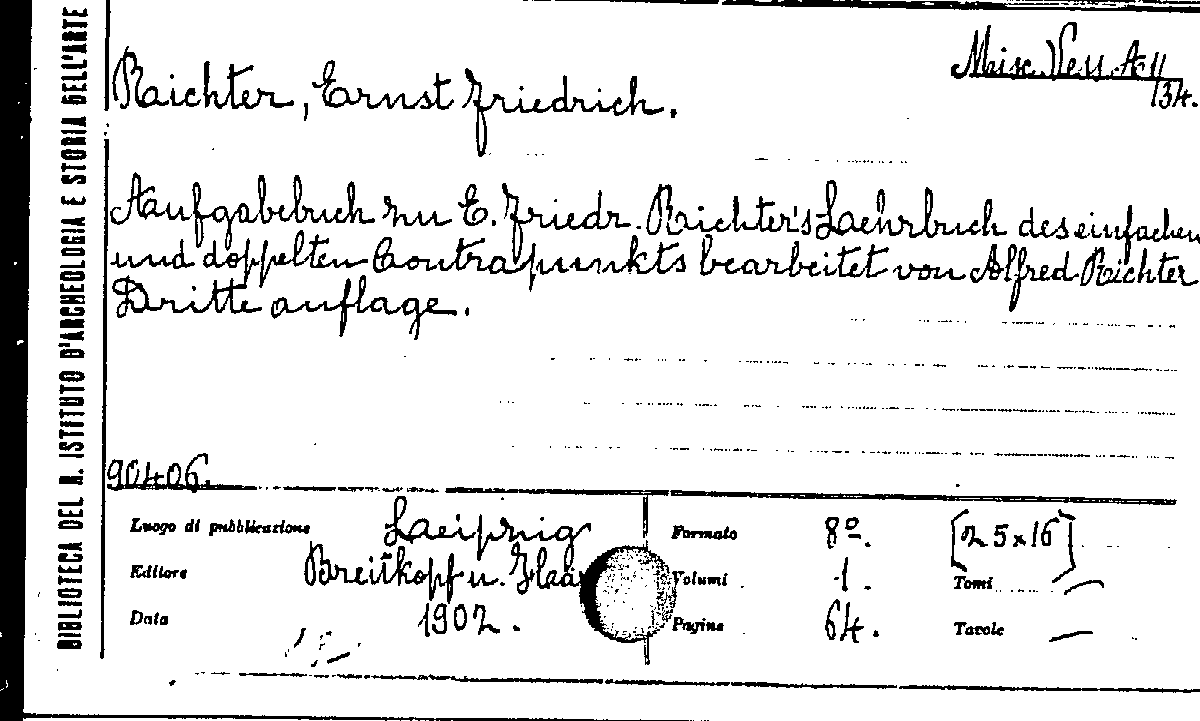 BIBLIOTECA DEL R. ISTITUTO D'ARCHEOLOGIA E STORIA DELL'ARTE
Misc. Vess. A. 11
134.
Richter, Ernst Friedrich.
Aufgabebuch zu E. Friedr. Richter's Laehrbuch des einfachen
und doppelten Contrapunkts bearbeitet von Alfred Richter
Dritte auflage.
90406.
Luogo di pubblicazione Laeipzig Formato 8º. [25x16]
Editore Breitkopf u. Haar Volumi 1. Tomi —
Data 1902. Pagine 64. Tavole —